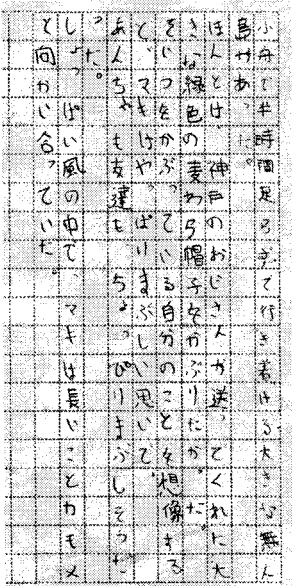 小舟で半時間足らずで行き着ける大きな無人
島があった。
ほんとは、神戸のおじさんが送ってくれた大
きな緑色の麦わら帽子をかぶりたかった。だ
をいつをかぶっている自分のことを想像する
と、マキはやっぱりまぶしい思いで
あんちゃも友達もちょっぴりまぶしそうだ
った。
しょっぱい風の中で、マキは長いことカモメ
と向かい合っていた。